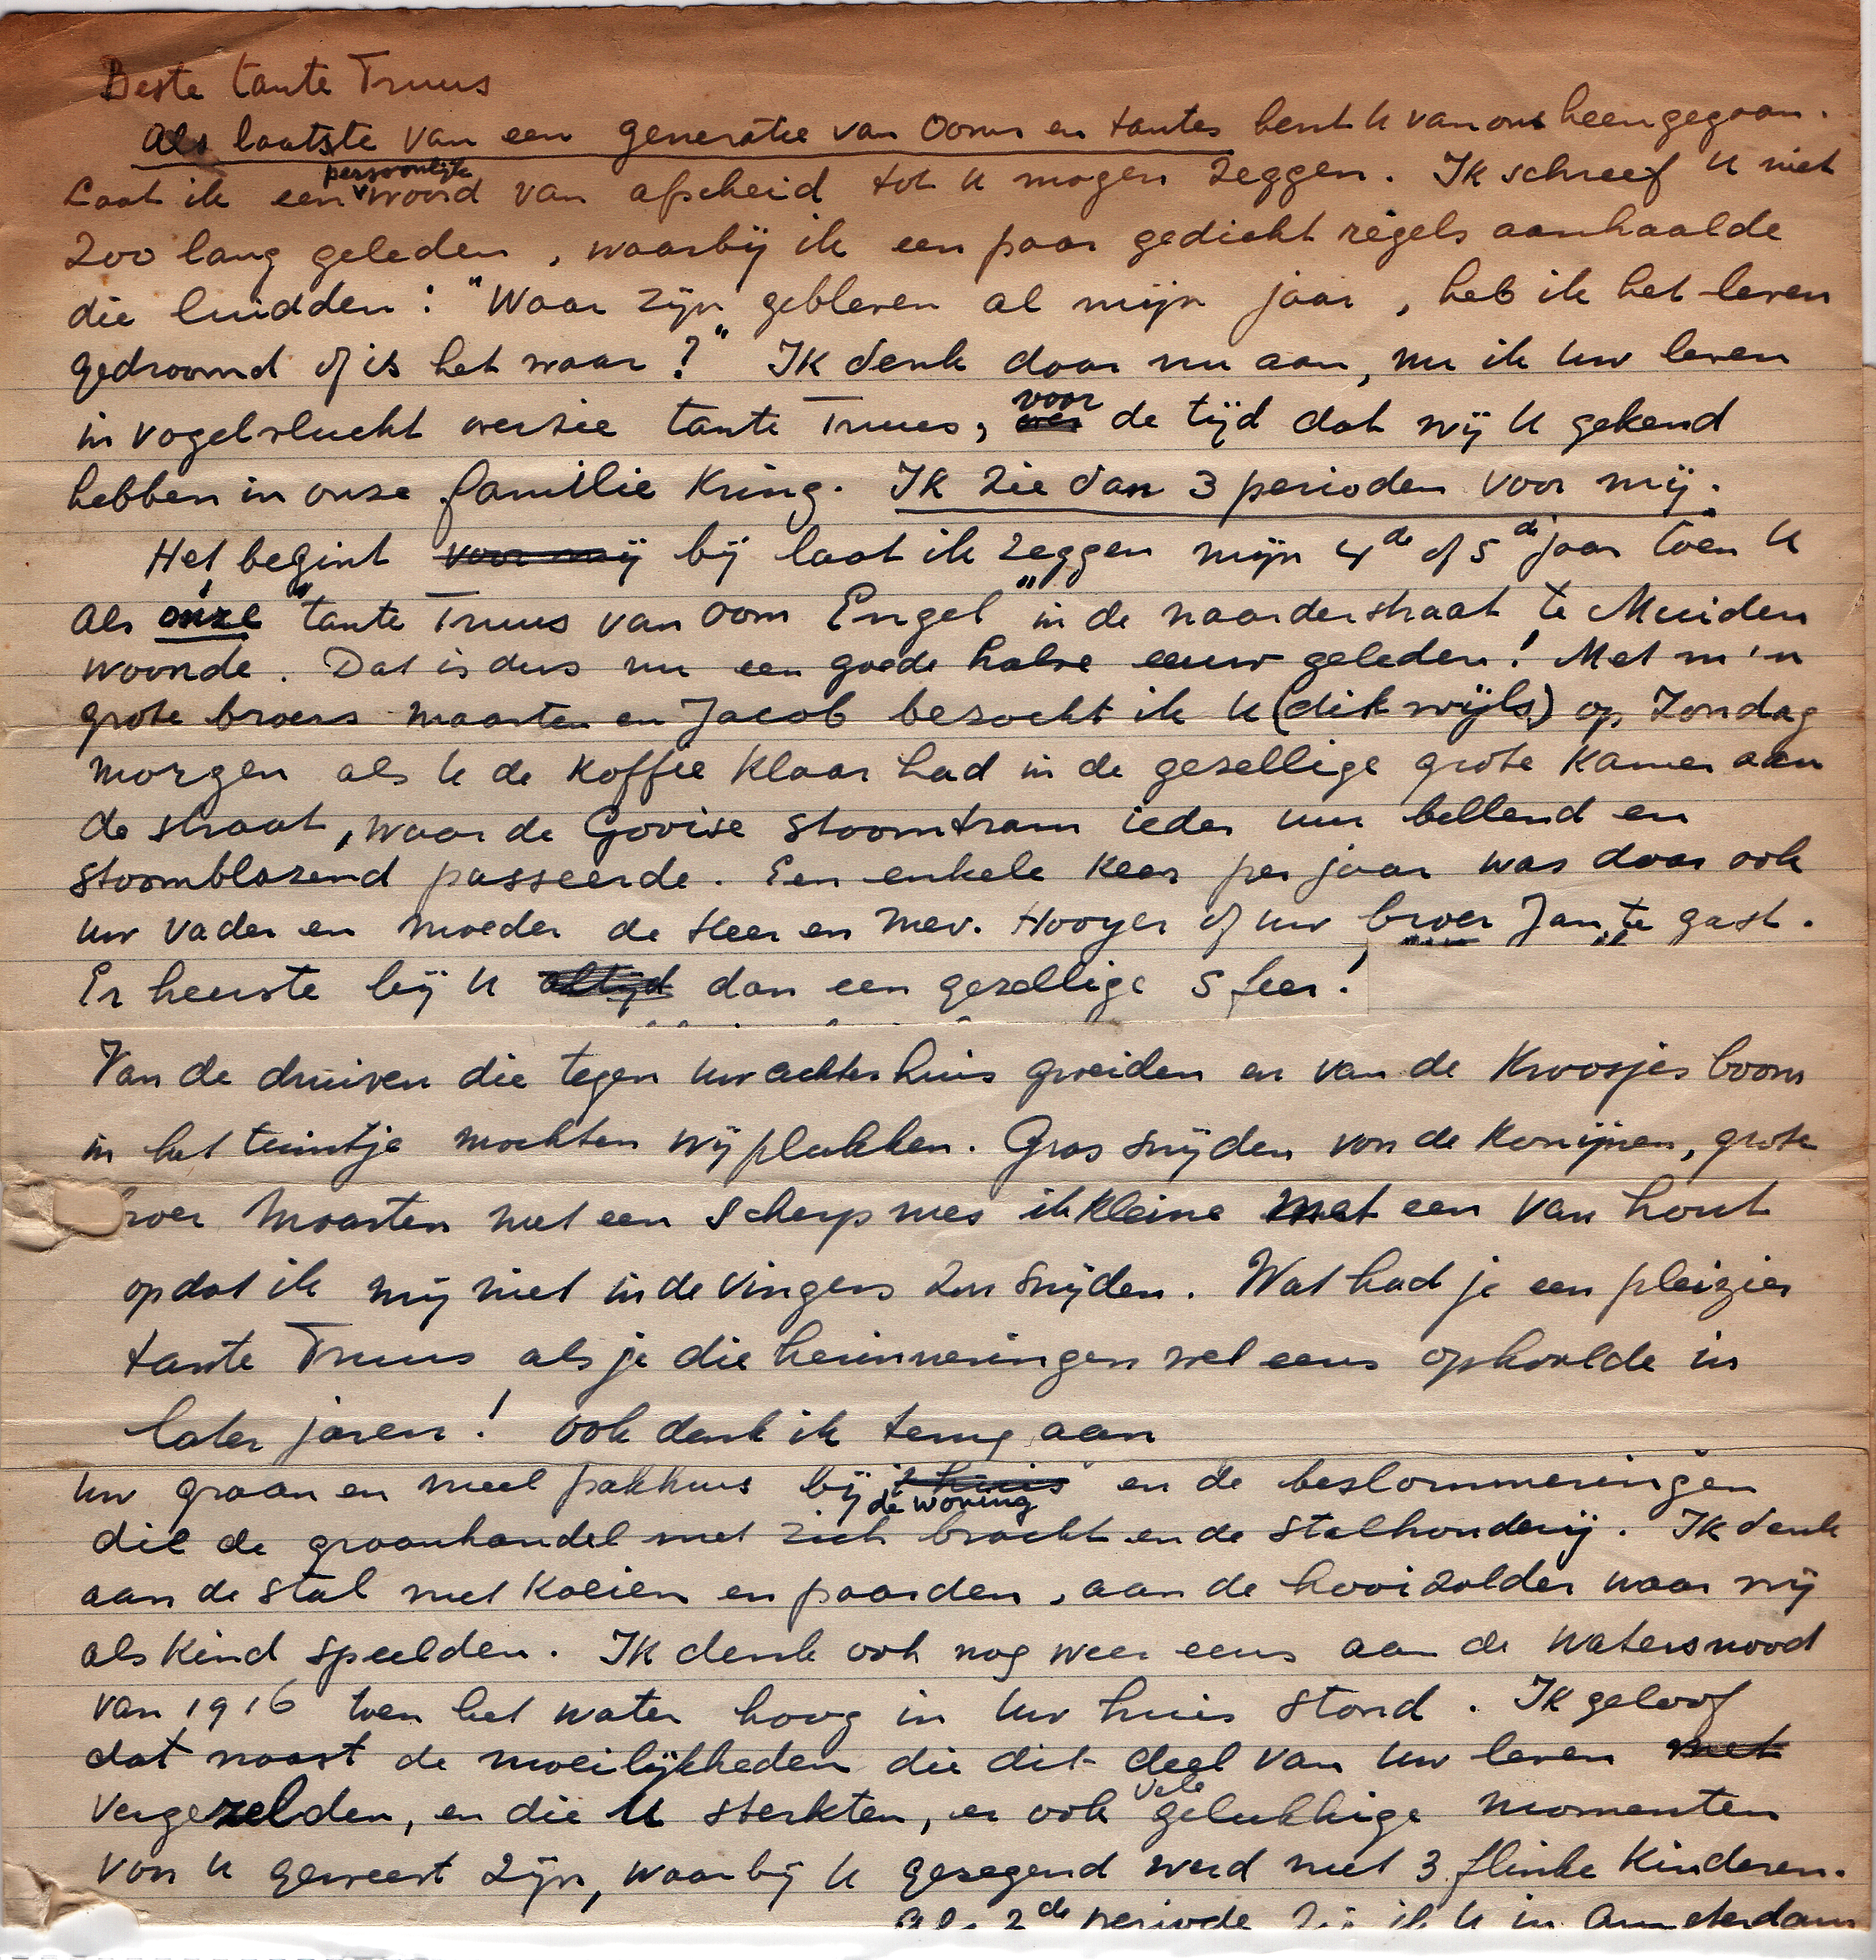 Beste tante Truus
Als laatste van een generatie van Ooms en tantes bent U van ons heengegaan.
persoonlijk
Laat ik een woord van afscheid tot U mogen zeggen. Ik schreef U niet
zoo lang geleden, waarbij ik een paar gedicht regels aanhaalde
die luidden: "Waar zijn gebleven al mijn jaar, heb ik het leven
gedroomd of is het waar?" Ik denk daar nu aan, nu ik Uw leven
voor
in vogelvlucht overzie tante Truus, over de tijd dat wij U gekend
hebben in onze familie Kring. Ik zie dan 3 perioden voor mij.
Het begint voor mij bij laat ik zeggen mijn 4de of 5de jaar toen U
als onze "tante Truus van Oom Engel" in de naarderstraat te Muiden
woonde. Dat is dus nu een goede halve eeuw geleden! Met m'n
grote broers Maarten en Jacob bezocht ik U (dikwijls) op Zondag
morgen als U de Koffie Klaar had in de gezellige grote Kamer aan
de straat, waar de Gooise Stoomtram ieder uur bellend en
stoomblazend passeerde. Een enkele Keer per jaar was daar ook
Uw vader en moeder de Heer en Mev. Hooyer of Uw broer Jan te gast.
Er heerste bij U altijd dan een gezellige sfeer!
Van de druiven die tegen Uw achterhuis groeiden en van de Kroosjes boom
in het tuintje mochten wij plukken. Gras snijden voor de Konijnen, grote
broer Maarten met een scherp mes ik Kleine met een van hout
opdat ik mij niet in de vingers zou snijden. Wat had je een pleizier
tante Truus als je die herinneringen wel eens ophaalde in
later jaren! Ook denk ik terug aan
Uw graan en meel pakhuis bij 't huis en de beslommeringen
de woning
die de graanhandel met zich bracht en de Stalhouderij. Ik denk
aan de stal met Koeien en paarden, aan de hooizolder waar wij
als Kind speelden. Ik denk ook nog weer eens aan de watersnood
van 1916 toen het water hoog in Uw huis stond. Ik geloof
dat naast de moeilijkheden die dit deel van Uw leven met
vele
vergezelden, en die U sterkten, er ook gelukkige momenten
voor U geweest zijn, waarbij U gezegend werd met 3 flinke Kinderen.
Als 2de periode zie ik U in Amsterdam